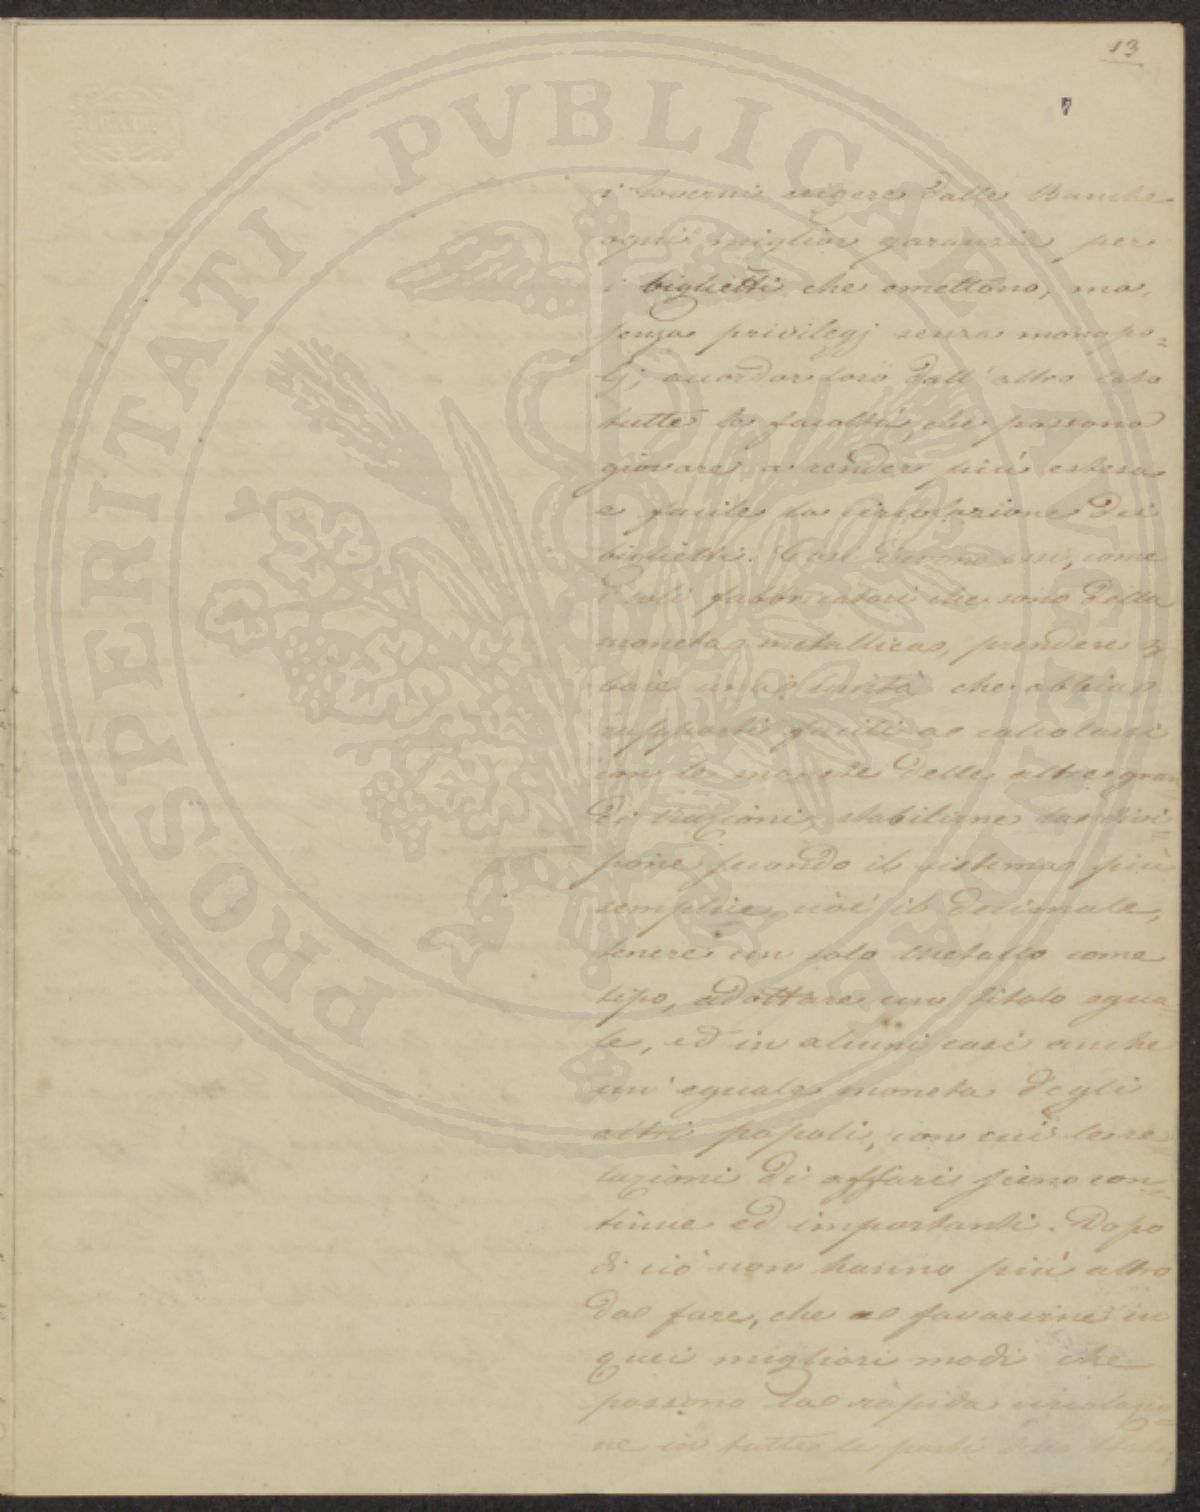 13
7
PROSPERITATI PVBLICAE AVGENDAE
i Governi esigere dalle Banche
ogni miglior garanzia per
i biglietti che emettono, ma
senza privilegj senza monopo=
lj; accordar loro dall'altro lato
tutte le facoltà, che possono
giovare a render più estesa
e facile la circolazione dei
biglietti. Così devono essi, come
i soli fabbricatori che sono della
moneta metallica, prendere a
base una unità che abbia
rapporti facili a calcolarsi
con le monete delle altre gran
di nazioni, stabilirne la divi=
sione secondo il sistema più
semplice, cioè il decimale,
tenere un solo metallo come
tipo, adottare un titolo egua=
le, ed in alcuni casi anche
un' eguale moneta degli
altri popoli, con cui le re=
lazioni di affari sieno con=
tinue ed importanti. Dopo
di ciò non hanno più altro
da fare, che a favorirne in
quei migliori modi che
possono la rapida circolazio=
ne in tutte le parti dello Stato,